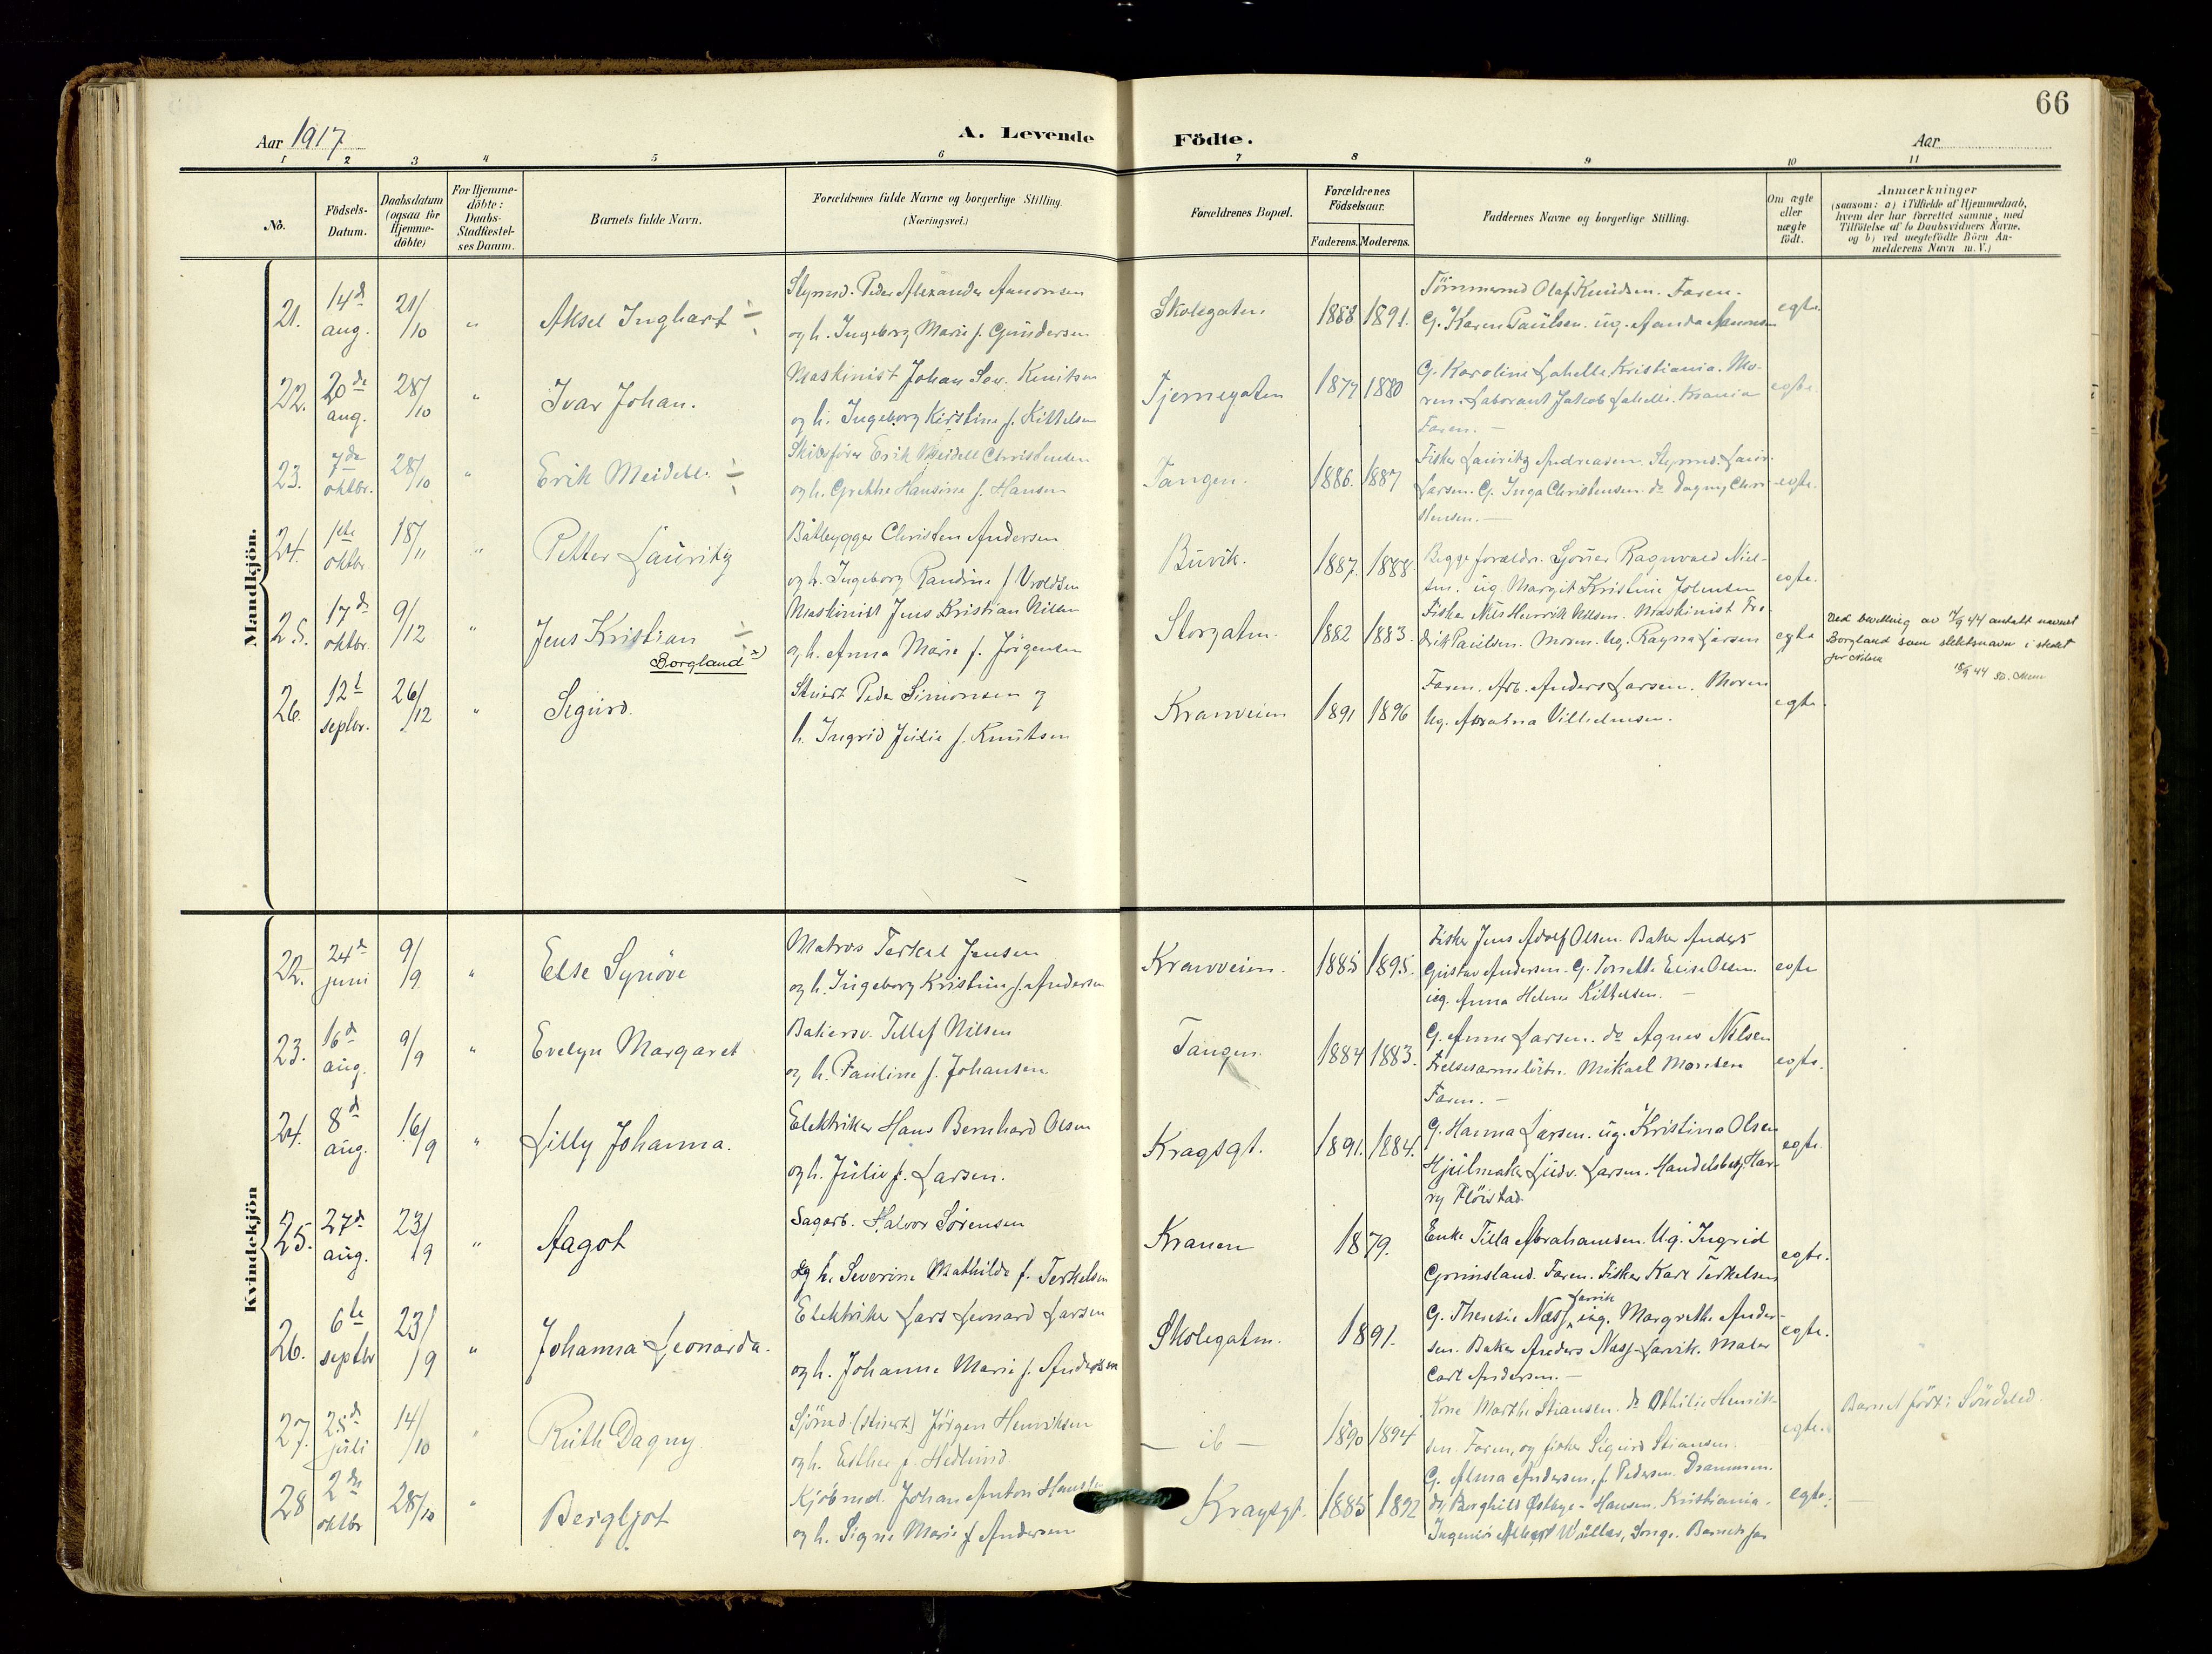 66
Aar 1917
A. Levende Födte.
Aar
1 2 3 4 5 6 7 8 9 10 11
No.
Födsels-Datum.
Daabsdatum (ogsaa for Hjemme-döbte)
For Hjemme-döbte: Daabs-Stadfæstel-ses Datum.
Barnets fulde Navn.
Forældrenes fulde Navne og borgerlige Stilling. (Næringsvei.)
Forældrenes Bopæl.
Forældrenes Födselsaar.
Faderens. Moderens.
Faddernes Navne og borgerlige Stilling.
Om ægte eller uægte født.
Anmærkninger
(saasom: a) i Tilfælde af Hjemmedaab, hvem der har forrettet samme, med Tilföielse af to Daabsvidners Navne, og b) ved uægtefödte Börn An-melderens Navn m. V.)
Mandkjön.
21. 14d aug. 21/10 " Aksel Inghart ÷
Styrmd. Peder Alexander
og h. Ingeborg Marie f. Gundersen
Skolegaten 1888 1891.
Tömmermd Olaf Knudsen. Faren.
G. Karen Paulsen. ug. Aanda
egte.
22. 20de aug. 28/10 Ivar Johan.
Maskinist Johan Sev. Knutsen
og h. Ingeborg Kirstine f. Kittelsen
Tjernegaten 1879 1880
G. Karoline Kristiania. Mo-
ren. Laborant Jakob
Faren. —
egte.
23. 7de oktbr. 28/10 " Erik Meidell. ÷
Skibsförer Erik Meidell Christensen
og h. Grethe Hansine f. Hansen
Tangen. 1886. 1887
Fisker Lauritz Andreasen. Styrmd. Laur.
Larsen. G. Inga Christensen. do Dagny Chri-
stensen. —
egte.
24. 1ste oktbr. 18/11 " Petter Lauritz
Båtbygger Christen Andersen
og h. Ingeborg Randine f. Vroldsen
Buvik. 1887. 1888.
Begge foreldr. Gjörtler Ragnvald Niel-
sen. ug. Margit Kristine
egte.
25. 17de oktbr. 9/12 " Jens Kristian ÷
Borgland x)
Maskinist Jens Kristian Nilsen
og h. Anna Marie f. Jörgensen
Storgaten. 1882 1883.
Fisker Nils Henrik Nilsen. Maskinist Fre-
drik Paulsen. Moren. Ug. Ragna Larsen
egte
Ved bevilling av 44 antatt navnet
Borgland som slektsnavn i stedet
for Nilsen
44
26. 12t septbr. 26/12 " Sigurd.
Stuert Peder Simonsen og
h. Ingrid Julie f. Knutsen
Kranveien 1891 1896
Faren. Arb. Anders Larsen. Moren
Ug. Vilhelmsen.
egte.
Kvindekjön
22. 24d juni 9/9 " Else Synöve
Matros Terkel Jensen
og h. Ingeborg Kristine f. Andersen
Kranveien. 1885 1895.
Fisker Jens Adolf Olsen. Baker Anders
Gustav Andersen. G. Torette Elise Olsen.
ug. Anna Helene Kittelsen. —
egte
23. 16d aug. 9/9 " Evelyn Margaret
Bakersv. Tellef Nilsen
og h. Pauline f. Johansen
Tangen. 1884 1883.
G. Anne Larsen. do Agnes Nilsen
Frelsesarmelöitn. Mikael
Faren. —
egte.
24. 8d aug. 16/9 " Lilly Johanna.
Elektriker Hans Bernhard Olsen
og h. Julie f. Larsen.
Kragsgt. 1891. 1884.
G. Hanna Larsen. ug. Kristina Olsen
Hjulmaker Ludv. Larsen. Handelsbetj. Har-
ry Flöistad.
egte.
25. 27d aug. 23/9 " Aagot
Sagarb. Halvor Sörensen
og h. Severine Mathilde f. Terkelsen
Kranen 1879.
Enke Tilla Abrahamsen. Ug. Ingrid
Grimsland. Faren. Fisker Karl Terkelsen
egte.
26. 6te septbr 23/9 " Johanna Leonarda.
Elektriker Lars Leonard Larsen
og h. Johanne Marie f. Andersen
Skolegaten. 1891.
G. Theresie Næss, Larvik ug. Margrethe Ander-
sen. Baker Anders Næss - Larvik. Maler
Carl Andersen. —
egte.
27. 25d juli 14/10 " Ruth Dagny.
Sjömd (stuert) Jörgen Henriksen
og h. Esther f. Hedlund.
— ib — 1890 1894
Kone Marthe Stiansen. do Othilie Henrik-
sen. Faren, og fisker Sigurd Stiansen.
egte.
Barnet födt i Söndeled.
28 2den oktbr 28/10 " Bergljot
Kjöbmd. Johan Anton Hanssen
og h. Signe Marie f. Andersen
Kragsgt. 1885 1892
G. Alma Andersen, f. Pedersen. Drammen.
do Borghild Østbye - Hansen. Kristiania.
Ingeniör Wüller, Songe. Barnets far
egte.